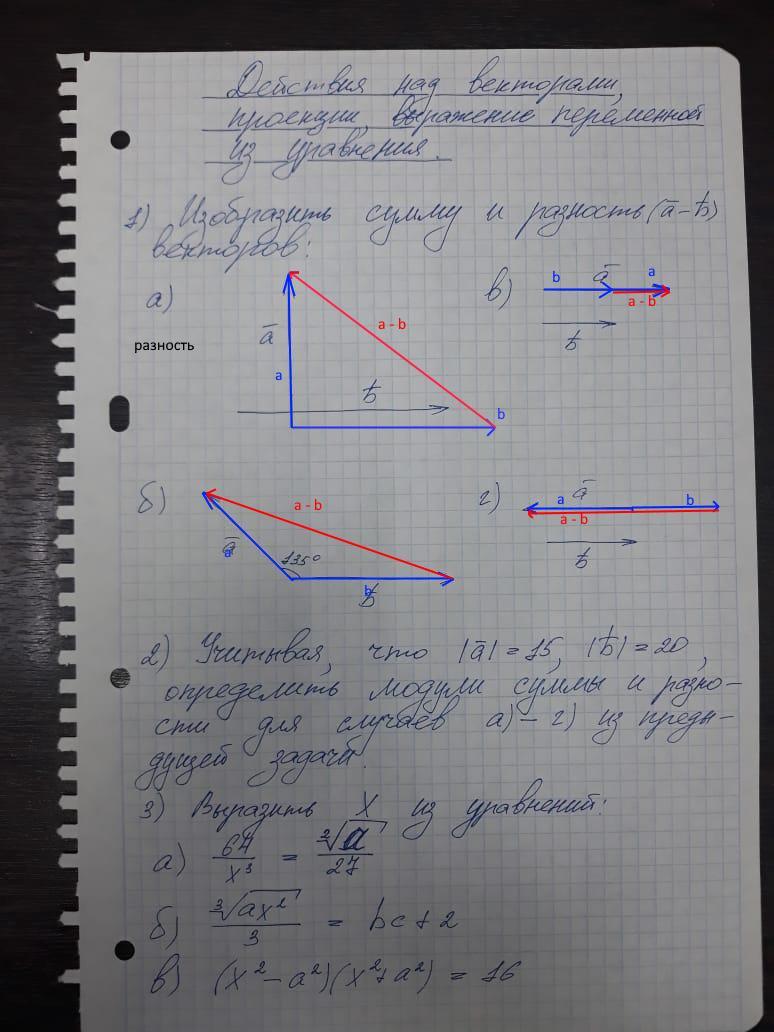 Действия над векторами,
проекции, выражение переменной
из уравнения.
1) Изобразить сумму и разность (a̅ - b̅)
векторов:
а)
a̅
a
a - b
b̅
b
разность
в)
b
a̅
a
a - b
b̅
б)
a - b
a̅
a
135°
b
b̅
г)
a
a̅
b
a - b
b̅
2) Учитывая, что |a̅| = 15, |b̅| = 20,
определить модули суммы и разно-
сти для случаев а) - г) из преды-
дущей задачи.
3) Выразить X из уравнений:
а) 64/x³ = ∛a/27
б) ∛ax²/3 = bc + 2
в) (x² - a²)(x² + a²) = 16